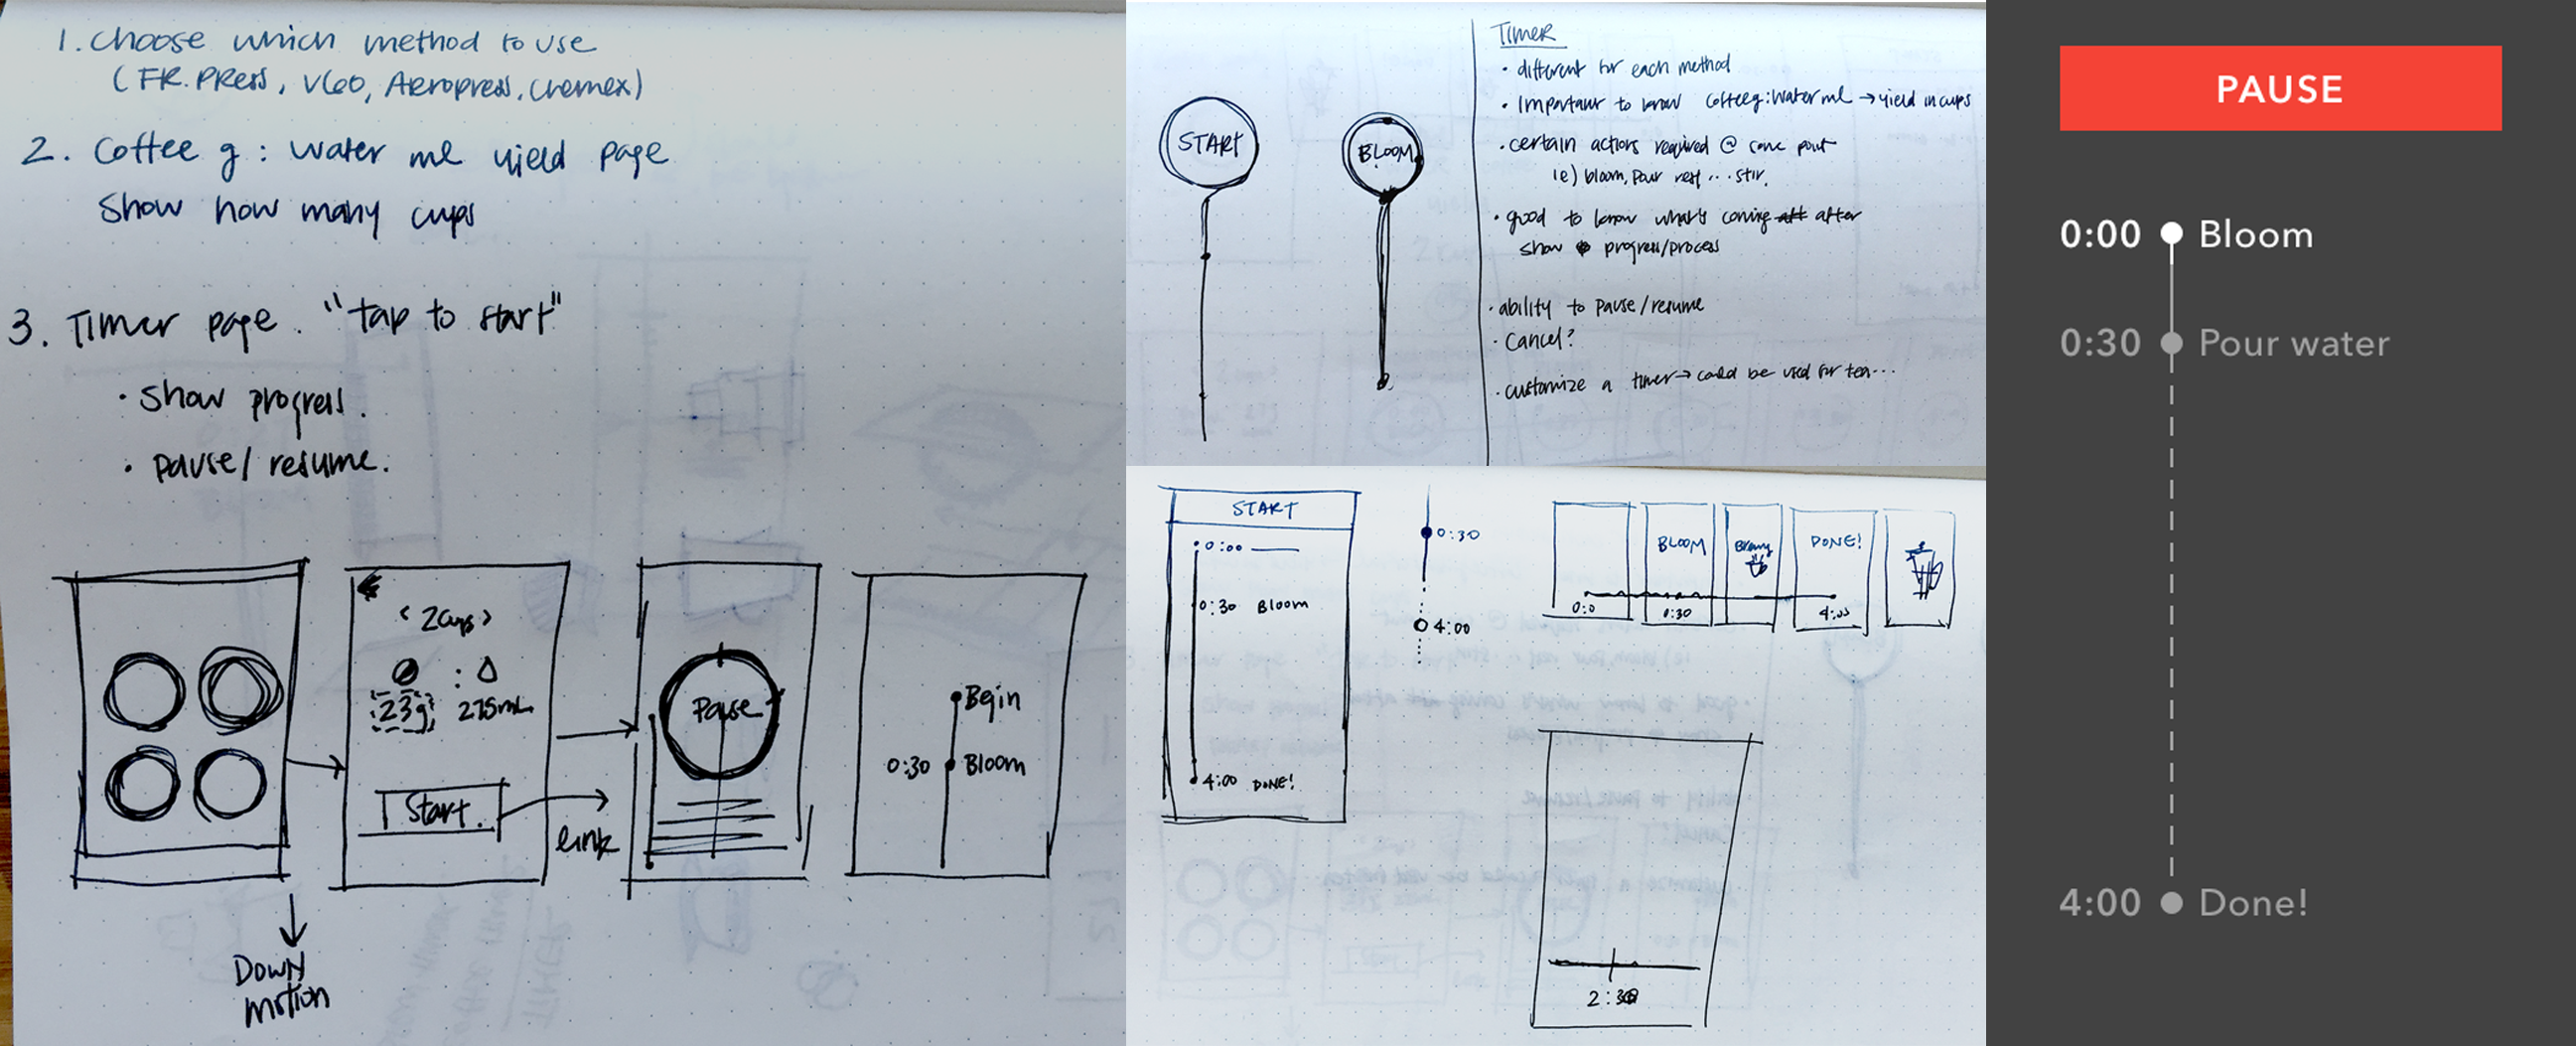 1. Choose which method to use
(FR. PRess, V60, Aeropress, Chemex)
2. Coffee g : water ml yield page
Show how many cups
3. Timer page. "tap to start"
· Show progress.
· pause/ resume.
< 2 Cups >
23g : 275mL
Start.
link
Pause
Begin
0:30 Bloom
DOWN
motion
START
BLOOM
Timer
· different for each method
· Important to know coffee g:water ml → yield in cups
· certain actions required @ some point
ie) bloom, pour rest ... stir.
· good to know what's coming after
show progress/process
· ability to pause/resume
· Cancel?
· customize a timer → could be used for tea...
START
0:00
0:30 Bloom
4:00 DONE!
0:30
4:00
BLOOM
DONE!
0:0
0:30
4:00
PAUSE
0:00 Bloom
0:30 Pour water
4:00 Done!